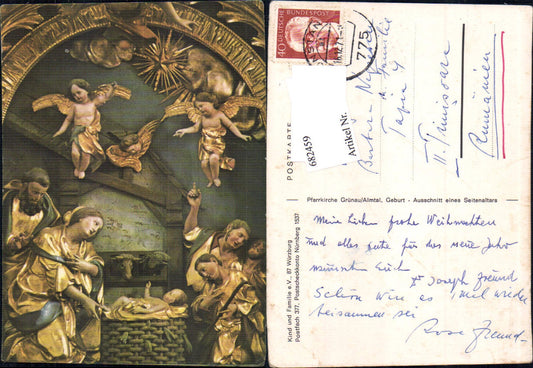 40
DEUTSCHE BUNDESPOST
775
POSTKARTE
682459
Artikel Nr.
Barbara
u. Familie
II. Timisoara
Rumänien
Pfarrkirche Grünau/Almtal, Geburt - Ausschnitt eines Seitenaltars
Kind und Familie e.V., 87 Würzburg
Postfach 377, Postscheckkonto Nürnberg 1537
Meine Lieben frohe Weihnachten
und alles gute für das neue Jahr
wünschen Euch
Joseph Freund
Schön wär es mal wieder
beisammen sei
Rosa Freund